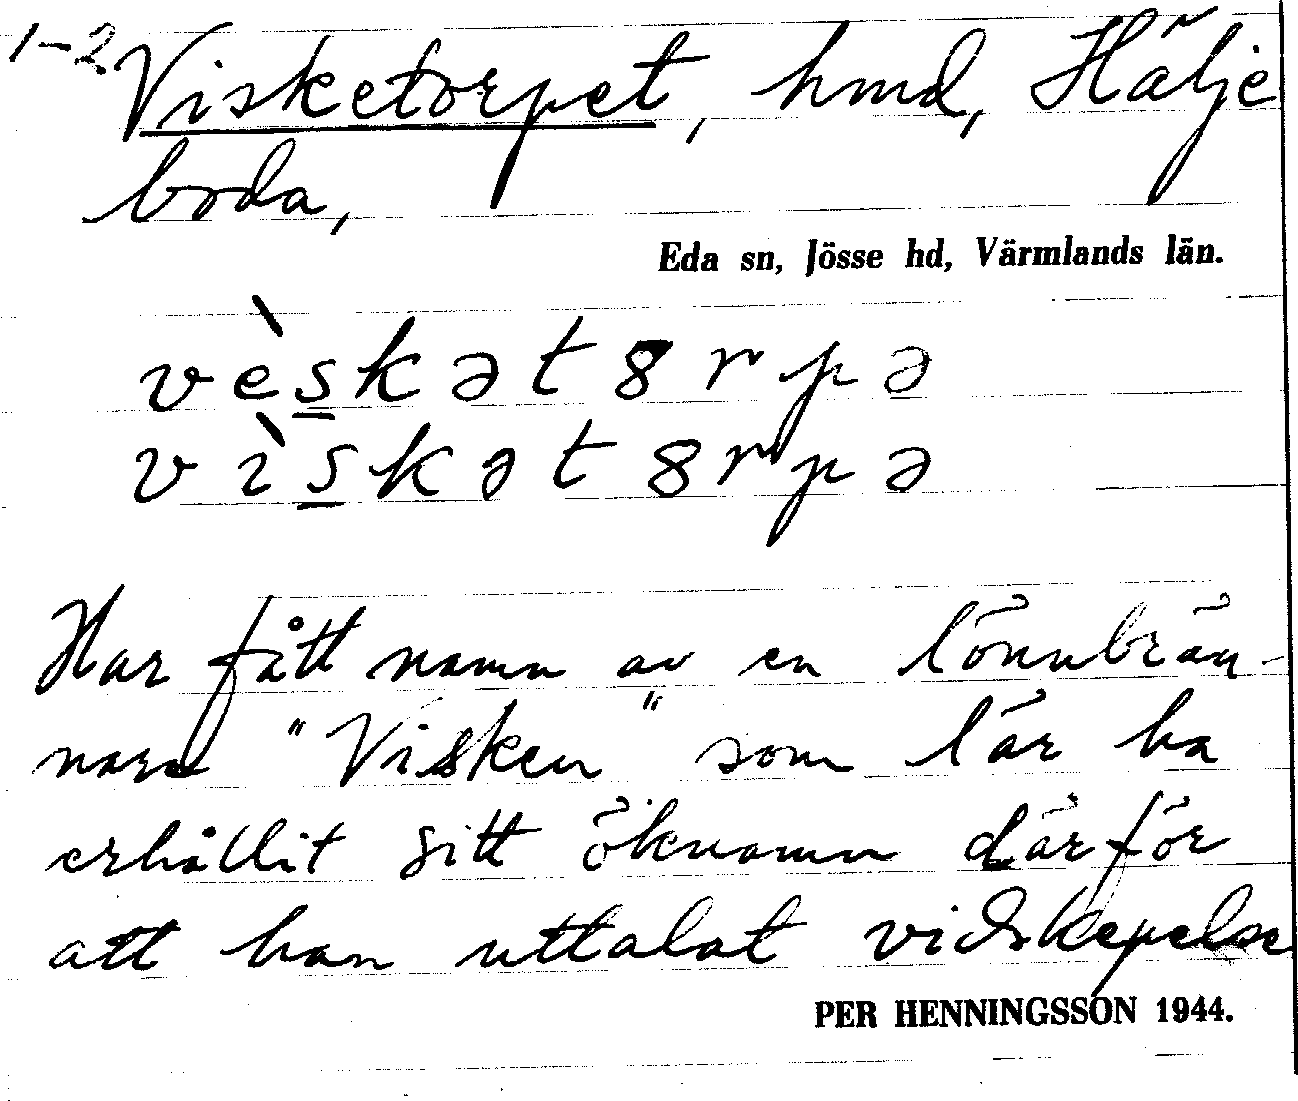 1-2
Visketorpet, hmd, Hälje
boda,
Eda sn, Jösse hd, Värmlands län.
vèskət8rpə
vìskət8rpə
Har fått namn av en lönnbrän-
nare "Visken" som lär ha
erhållit sitt öknamn därför
att han uttalat vidskepelse
PER HENNINGSSON 1944.